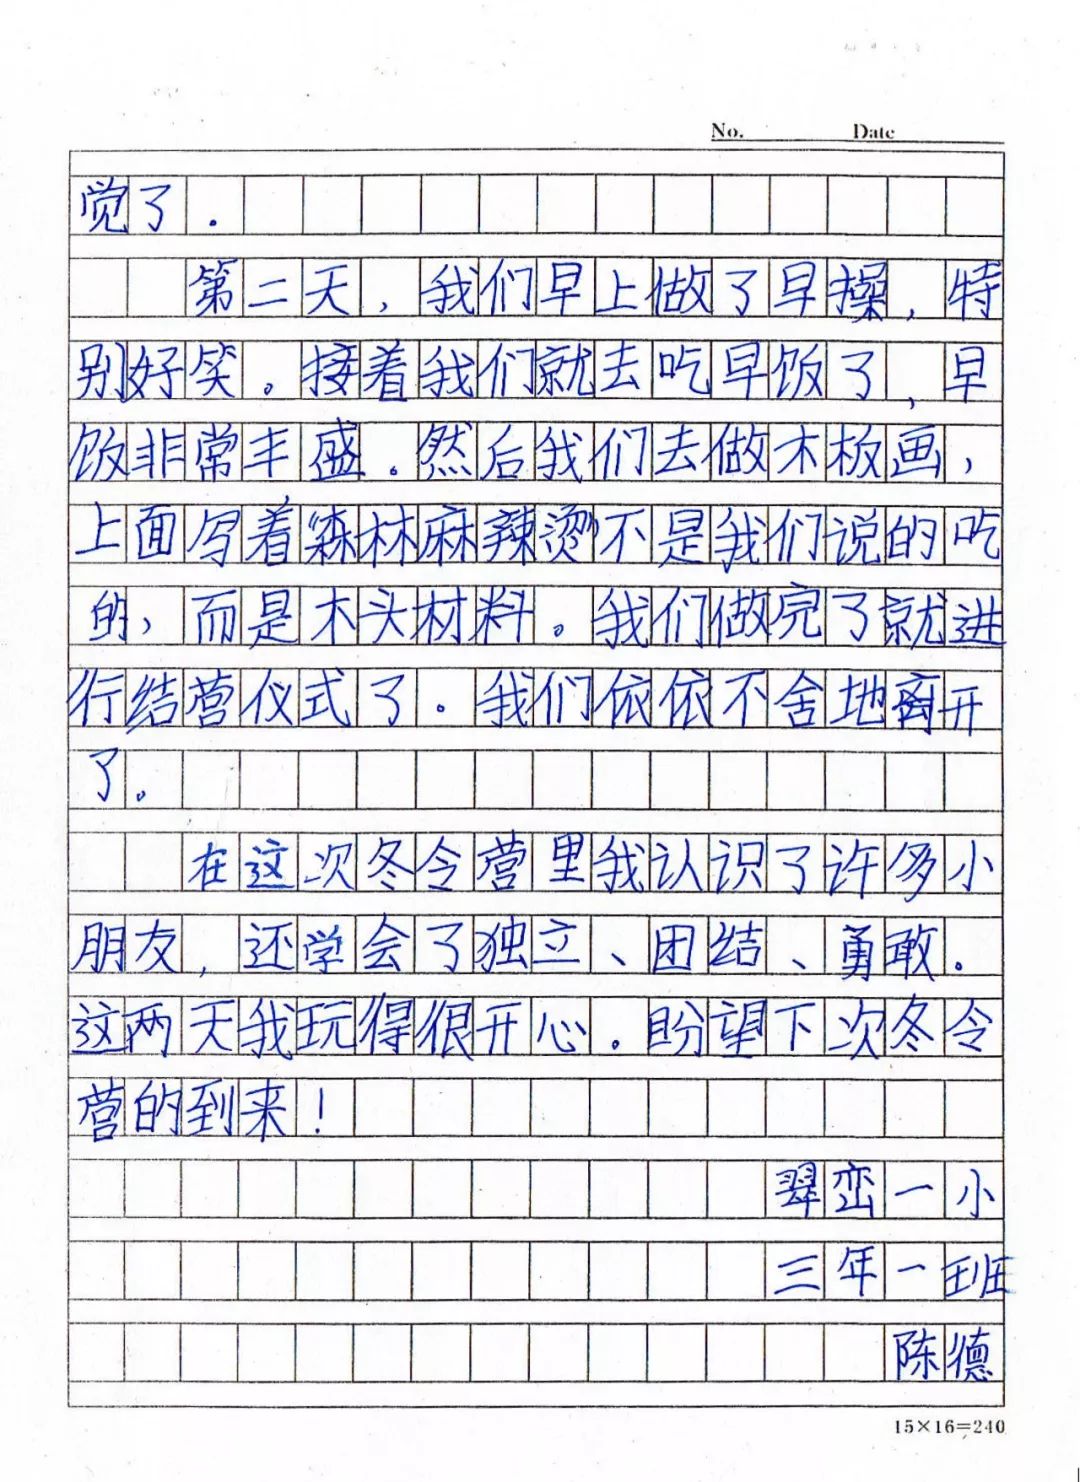 No. Date
觉了.
第二天,我们早上做了早操,特
别好笑。接着我们就去吃早饭了,早
饭非常丰盛.然后我们去做木板画,
上面写着森林麻辣烫”不是我们说的吃
的,而是木头材料。我们做完了就进
行结营仪式了.我们依依不舍地离开
了。
在这次冬令营里我认识了许多小
朋友,还学会了独立、团结、勇敢。
这两天我玩得很开心.盼望下次冬令
营的到来!
翠峦一小
三年一班
陈德
15×16=240